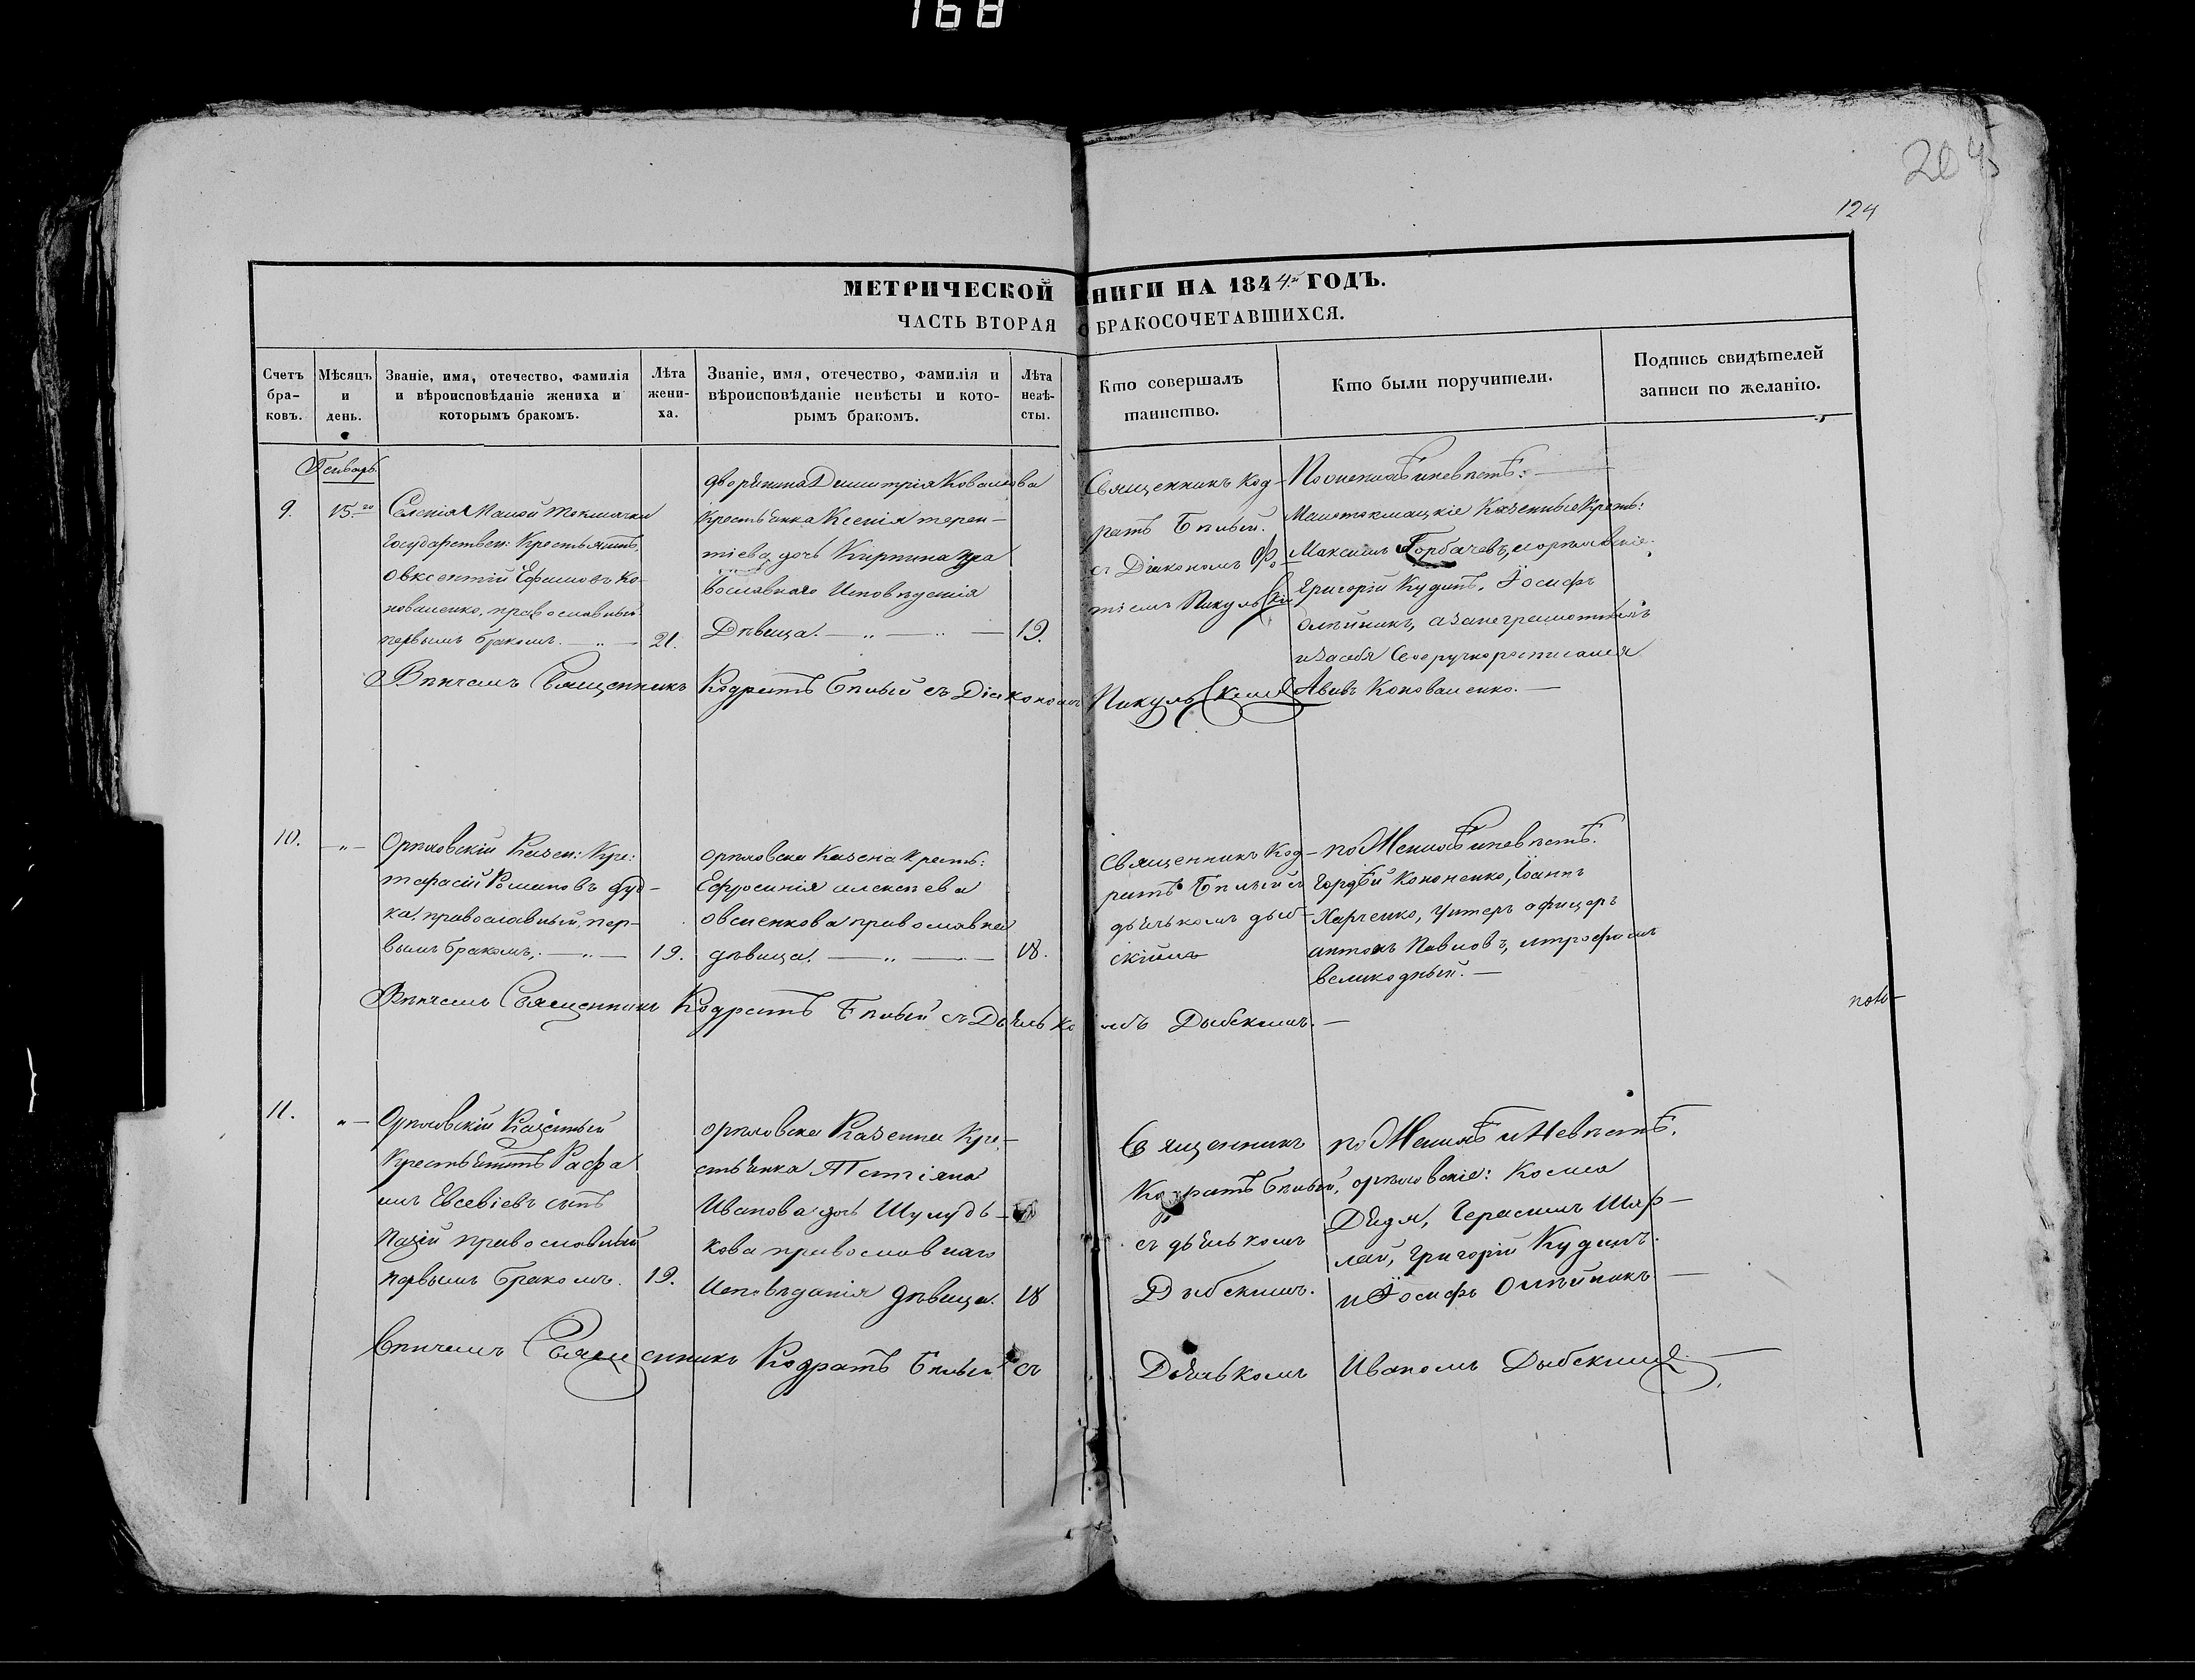 168
20 45
124
МЕТРИЧЕСКОЙ КНИГИ НА 1844й ГОДЪ.
ЧАСТЬ ВТОРАЯ О БРАКОСОЧЕТАВШИХСЯ.
Счетъ бра-
ковъ.
Мѣсяцъ
и
день.
Званіе, имя, отечество, фамилія
и вѣроисповѣданіе жениха и
которымъ бракомъ.
Лѣта
жени-
ха.
Званіе, имя, отечество, фамилія и
вѣроисповѣданіе невѣсты и кото-
рымъ бракомъ.
Лѣта
невѣ-
сты.
Кто совершалъ
таинство.
Кто были поручители.
Подпись свидѣтелей
записи по желанію.
Генварь.
9.
15.го
Селенія Малой Токмачки
государствен: Крестьянинъ
Овксентій Ефимовъ Ко-
новаленко, православный
первымъ бракомъ. — „ —
21.
дворянина Димитрія Ковалкова
крестьянка Ксенія терен-
тіева дочь Кирпина пра
вославнаго Исповѣденія
Дѣвица. — „ — „ —
19.
Священникъ Код-
ратъ Бѣлый.
съ Діакономъ Фо
тіемъ Пикульским
По женихѣ и невѣстѣ: —
Малотокмацкіе Казенные Крест:
Максимъ Горбачевъ, и орѣховскіе
Григорій Кудинъ, Іосифъ
Олѣйникъ, а за неграмотныхъ
и за себя своеручно росписался
Авивъ Коноваленко. —
Вѣнчалъ Священникъ Кодратъ Бѣлый съ Діакономъ Пикульскимъ
10.
— „ —
Орѣховскій Казен: Кре:
тарасій Романовъ дуд-
ка, православный, пер-
вымъ бракомъ, — „ —
19.
орѣховска Казена крест:
Ефросинія алексѣева
овсиенкова православна
дѣвица. — „ — „ —
18.
Священникъ Код-
ратъ Бѣлый съ
дьячькомъ дыб-
скимъ
по Женихѣ и невѣстѣ.
Гордѣй Кононенко, Іоаннъ
Харченко, унтеръ офицеръ
антонъ Павловъ, митрофанъ
великодный. —
Вѣнчалъ Священникъ Кодратъ Бѣлый съ Дьячько мъ Дыбскимъ. —
11.
„ —
Орѣховскій Казеный
Крестьянинъ Рафа
илъ Евсевіевъ сынъ
православный
первымъ бракомъ.
19.
орѣховска Казенна Кре-
стьянка Татіяна
Иванова дочь Шулудь-
кова православнаго
Исповѣданія дѣвица.
18
Священникъ
Кодратъ Бѣлый,
съ дьячькомъ
Дыбскимъ.
по Женихѣ и Невѣстѣ.
орѣховскіе: Косма
Дидя, Герасимъ Шар-
лай, Григорій Кудинъ.
и Іосифъ Олѣйникъ —
Вѣнчалъ Священникъ Кодратъ Бѣлый съ Дьячькомъ Иваномъ Дыбскимъ. —